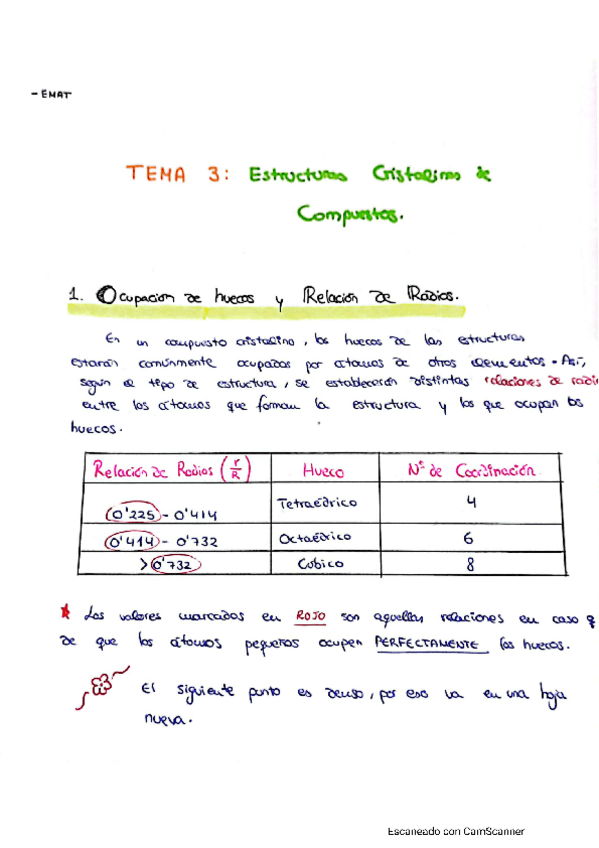 - EMAT
TEMA 3: Estructuras Cristalinas de
Compuestos.
1. Ocupación de huecos y Relación de Radios.
En un compuesto cristalino, los huecos de las estructuras
estarán comúnmente ocupados por átomos de otros elementos. Así,
según el tipo de estructura, se establecerán distintas relaciones de radi
entre los átomos que forman la estructura y los que ocupan los
huecos.
Relación de Radios (r/R) Hueco Nº de Coordinación
0'225 - 0'414 Tetraédrico 4
0'414 - 0'732 Octaédrico 6
>0'732 Cúbico 8
* Los valores marcados en ROJO son aquellas relaciones en caso q
de que los átomos pequeños ocupen PERFECTAMENTE los huecos.
El siguiente punto es denso, por eso va en una hoja
nueva.
Escaneado con CamScanner